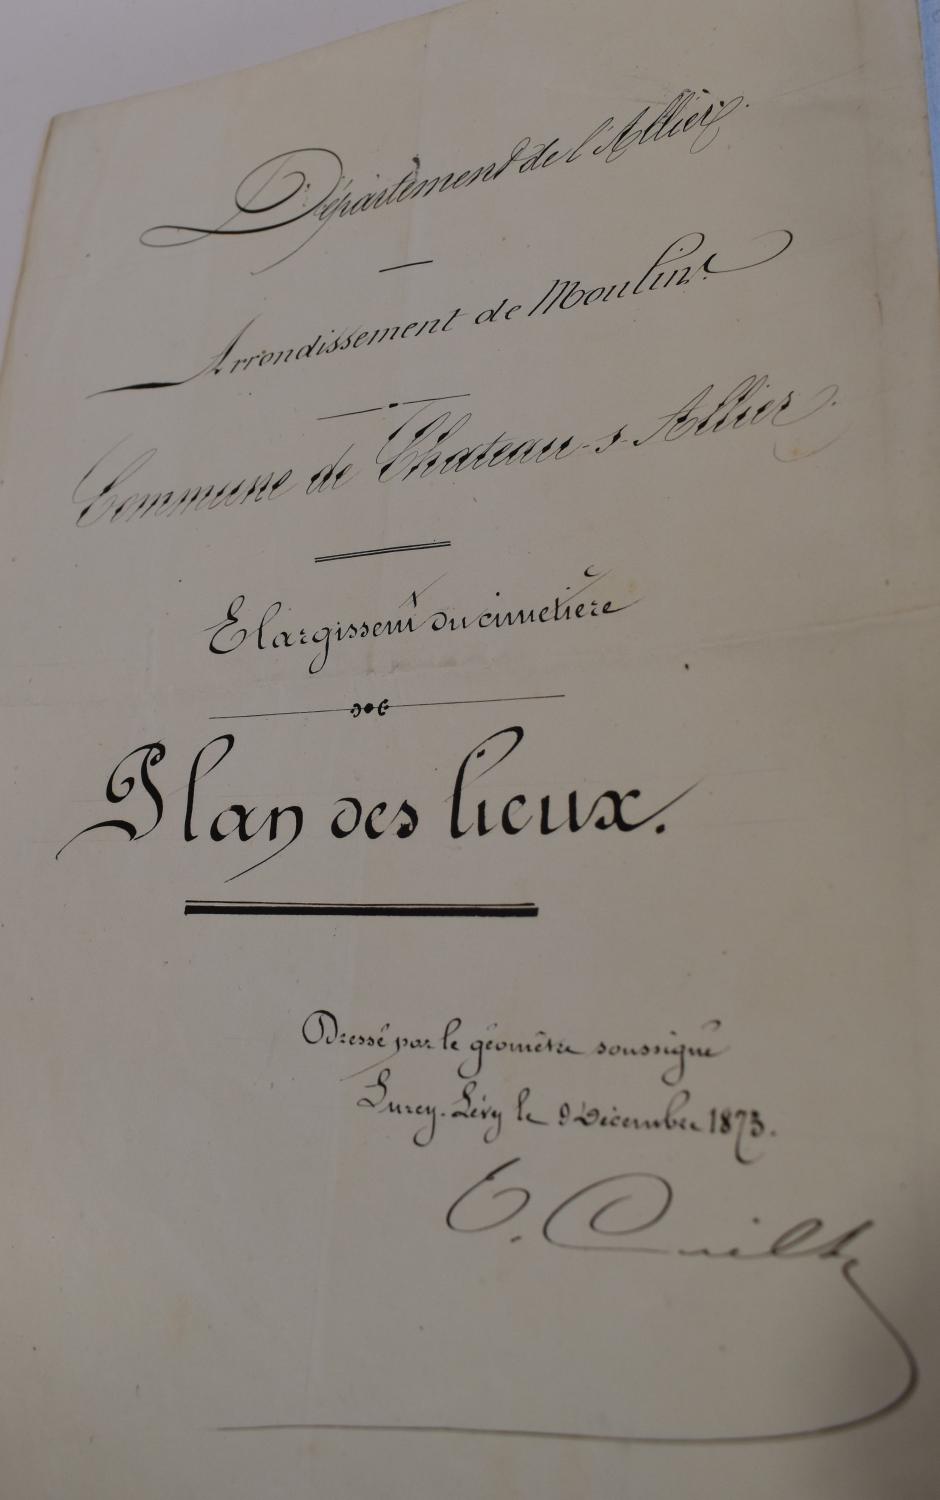 Département de l'Allier.
Arrondissement de Moulins.
Commune de Chateau-s-Allier.
Elargissemt du cimetière
Plan des lieux.
Dressé par le géomètre soussigné
Lurcy-Lévy le 9 Décembre 1873.
E.